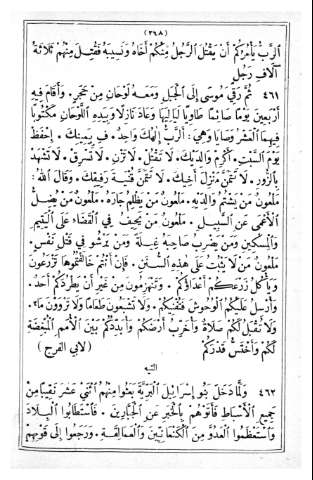 (٢٩٨)
اَلرَّبُّ يَأْمُرُكُمْ أَنْ يَقْتُلَ ٱلرَّجُلُ مِنْكُمْ أَخَاهُ وَنَسِيبَهُ فَقُتِلَ مِنْهُمْ ثَلَاثَةُ
آلَافِ رَجُلٍ
٤٦١ ثُمَّ رَقِيَ مُوسَى إِلَى ٱلْجَبَلِ وَمَعَهُ لَوْحَانِ مِنْ حَجَرٍ. وَأَقَامَ فِيهِ
أَرْبَعِينَ يَوْمًا صَائِمًا طَاوِيًا لَيَالِيَهَا وَعَادَ نَازِلًا وَبِيَدِهِ ٱللَّوْحَانِ مَكْتُوبًا
فِيهِمَا ٱلْعَشْرُ وَصَايَا وَهِيَ: اَلرَّبُّ إِلٰهُكَ وَاحِدٌ. فِي يَمِينِكَ. اِحْفَظْ
يَوْمَ ٱلسَّبْتِ. أَكْرِمْ وَالِدَيْكَ. لَا تَقْتُلْ. لَا تَزْنِ. لَا تَسْرِقْ. لَا تَشْهَدْ
بِٱلزُّورِ. لَا تَتَمَنَّ مَنْزِلَ أَخِيكَ. لَا تَتَمَنَّ قُنْيَةَ رَفِيقِكَ. وَقَالَ ٱللهُ:
مَلْعُونٌ مَنْ يَشْتُمُ وَالِدَيْهِ. مَلْعُونٌ مَنْ يَظْلِمُ جَارَهُ. مَلْعُونٌ مَنْ يُضِلُّ
ٱلْأَعْمَى عَنِ ٱلسَّبِيلِ. مَلْعُونٌ مَنْ يَحِيفُ فِي ٱلْقَضَاءِ عَلَى ٱلْيَتِيمِ
وَٱلْمِسْكِينِ وَمَنْ يَضْرِبُ صَاحِبَهُ غِيلَةً وَمَنْ يَرْتَشُو فِي قَتْلِ نَفْسٍ.
مَلْعُونٌ مَنْ لَا يَثْبُتُ عَلَى هٰذِهِ ٱلسُّنَنِ. فَإِنْ أَنْتُمْ خَالَفْتُمُوهَا تَزْرَعُونَ
وَيَأْكُلُ زَرْعَكُمْ أَعْدَاؤُكُمْ. وَتَنْهَزِمُونَ مِنْ غَيْرِ أَنْ يَطْرُدَكُمْ أَحَدٌ.
وَأُرْسِلُ عَلَيْكُمُ ٱلْوُحُوشَ فَتُفْنِيكُمْ. وَلَا تَشْبَعُونَ طَعَامًا وَلَا تَرْوَوْنَ مَاءً.
وَلَا تُقْبَلُ لَكُمْ صَلَاةٌ وَأُخْرِبُ أَرْضَكُمْ وَأُبَدِّدُكُمْ بَيْنَ ٱلْأُمَمِ ٱلْمُبْغِضَةِ
لَكُمْ وَأَخْتَسُّ قَدْرَكُمْ (لابي الفرج)
التيه
٤٦٢ وَلَمَّا دَخَلَ بَنُو إِسْرَائِيلَ ٱلْبَرِّيَّةَ بَعَثُوا مِنْهُمُ ٱثْنَيْ عَشَرَ نَقِيبًا مِنْ
جَمِيعِ ٱلْأَسْبَاطِ فَأَتَوْهُمْ بِٱلْخَبَرِ عَنِ ٱلْجَبَّارِينَ. فَٱسْتَطَابُوا ٱلْبِلَادَ
وَٱسْتَعْظَمُوا ٱلْعَدُوَّ مِنَ ٱلْكَنْعَانِيِّينَ وَٱلْعَمَالِقَةِ. وَرَجَعُوا إِلَى قَوْمِهِمْ